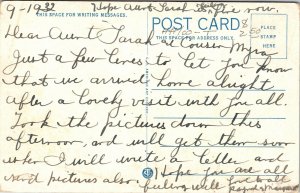 9-1932 Hope Aunt Sarah is
THIS SPACE FOR WRITING MESSAGES.
POST CARD
THIS SPACE FOR ADDRESS ONLY
PLACE
STAMP
Dear Aunt Sarah & Cousin Myra
Just a few lines to let you know
that we arrived home alright
after a lovely visit with you all.
Took the pictures down this
afternoon, and will get them soon
when I will write a letter and
send pictures also. Hope you are all
feeling well